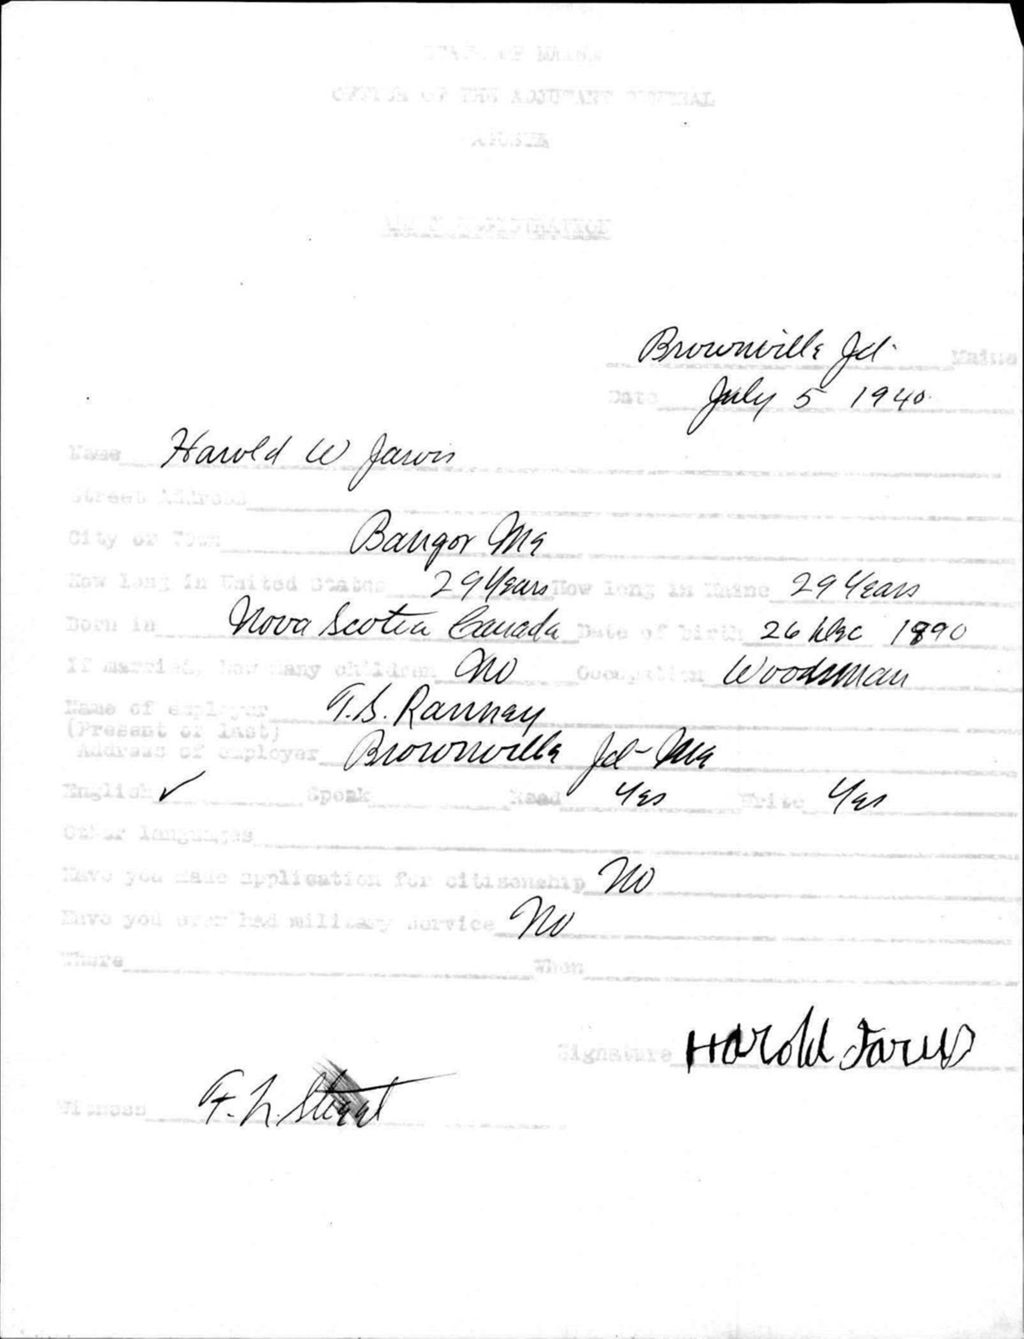 STATE OF MAINE
OFFICE OF THE ADJUTANT GENERAL
AUGUSTA
ALIEN REGISTRATION
Brownville Jct. Maine
Date July 5 1940
Name Harold W Jarvis
Street Address
City or Town Bangor Me
How long in United States 29 Years How long in Maine 29 Years
Born in Nova Scotia Canada Date of birth 26 Dec 1890
If married, how many children No Occupation Woodsman
Name of employer T.S. Ranney
(Present or last)
Address of employer Brownville Jct- Me
English ✓ Speak Read Yes Write Yes
Other languages
Have you made application for citizenship No
Have you ever had military service No
Where When
Signature Harold Jarvis
Witness F. L.